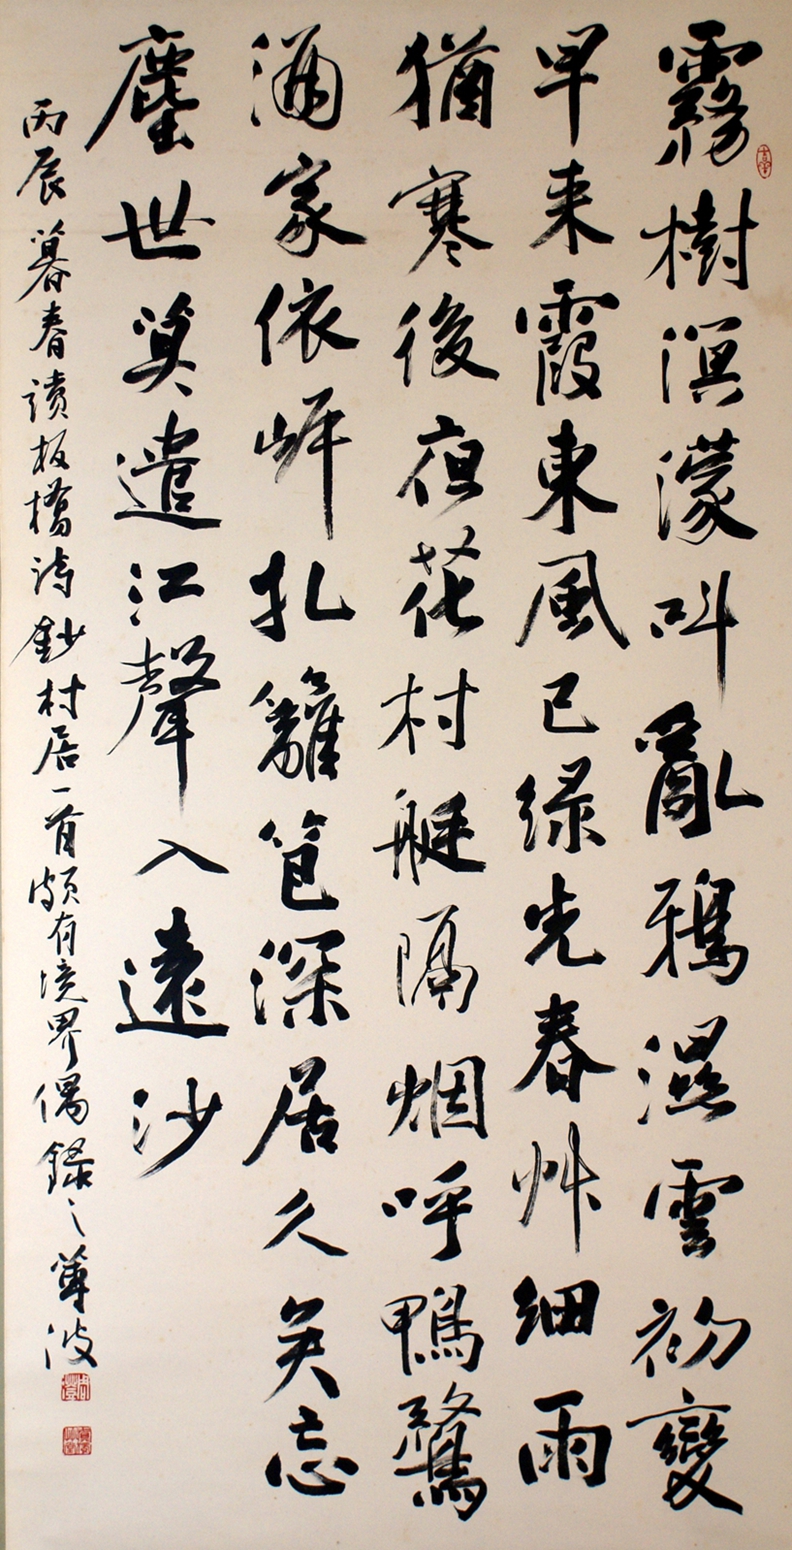 霧樹溟濛叫亂鴉濕雲初變
早来霞東風已綠先春艸細雨
猶寒後夜花村艇隔烟呼鴨鶩
酒家依岸扎籬笆深居久矣忘
塵世莫遣江聲入遠沙
丙辰暮春讀板橋詩鈔村居一首頗有境界偶錄之 波